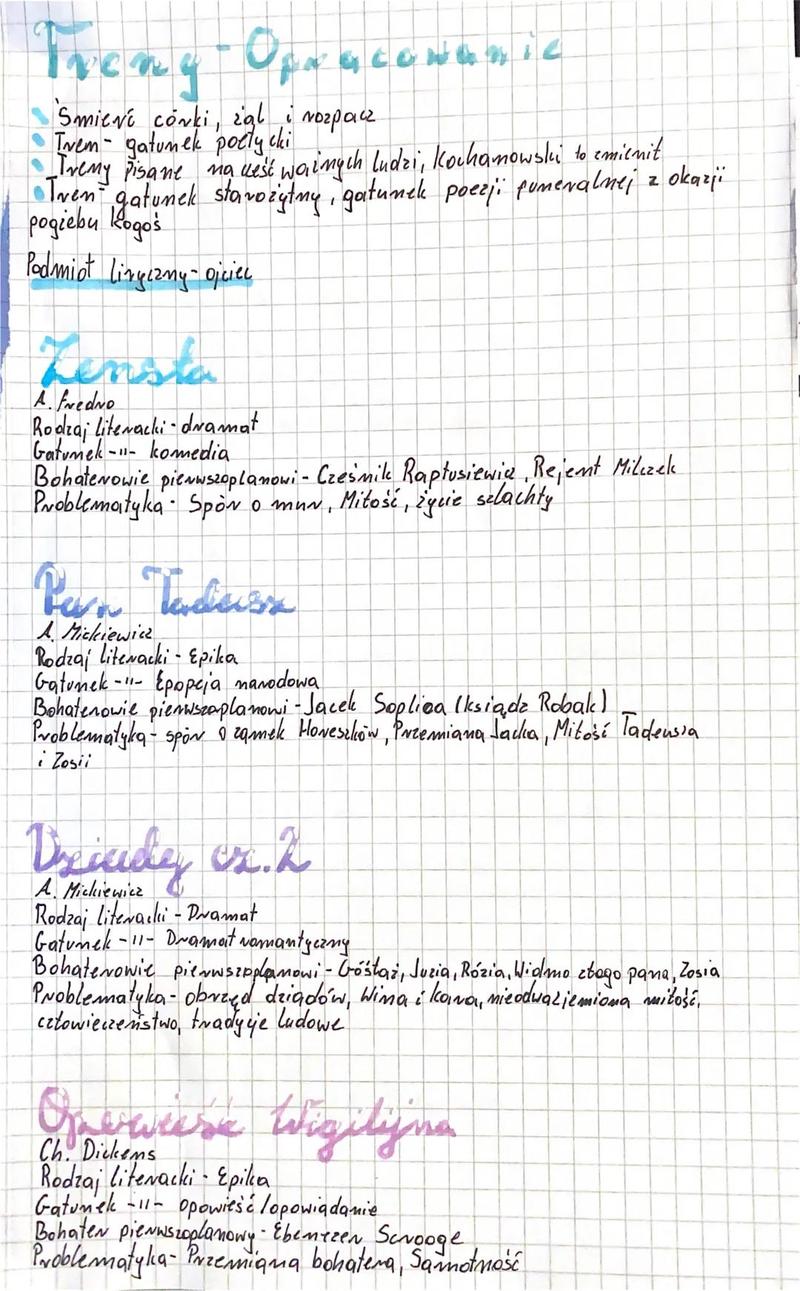 Treny - Opracowanie
Śmierć córki, żal i rozpacz
Tren - gatunek poetycki
Treny pisane na cześć ważnych ludzi, Kochanowski to zmienił
Tren - gatunek starożytny, gatunek poezji funeralnej z okazji
pogżebu kogoś
Podmiot liryczny - ojciec
Zemsta
A. Fredro
Rodzaj literacki - dramat
Gatunek -"- komedia
Bohaterowie pierwszoplanowi - Cześnik Raptusiewicz, Rejent Milczek
Problematyka - Spór o mur, Miłość, życie szlachty
Pan Tadeusz
A. Mickiewicz
Rodzaj literacki - Epika
Gatunek -"- Epopeja narodowa
Bohaterowie pierwszoplanowi - Jacek Soplica (ksiądz Robak)
Problematyka - spór o zamek Horeszków, Przemiana Jacka, Miłość Tadeusza
i Zosii
Dziady cz.2
A. Mickiewicz
Rodzaj literacki - Dramat
Gatunek -"- Dramat romantyczny
Bohaterowie pierwszoplanowi - Guślarz, Józia, Rózia, Widmo złego pana, Zosia
Problematyka - obrzęd dziadów, Wina i kara, nieodwzajemiona miłość,
człowieczeństwo, tradycje ludowe
Opowieść Wigilijna
Ch. Dickens
Rodzaj literacki - Epika
Gatunek -"- opowieść/opowiadanie
Bohater pierwszoplanowy - Ebenezer Scrooge
Problematyka - Przemiana bohatera, Samotność